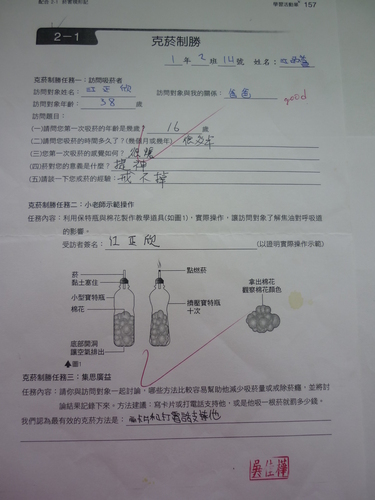 學習活動單 157
2-1 克菸制勝
1年2班14號 姓名：
克菸制勝任務一：訪問吸菸者
訪問對象姓名：江正欣 訪問對象與我的關係：爸爸
訪問對象年齡：38歲 good
訪問題目：
(一)請問您第一次吸菸的年齡是幾歲？16歲
(二)請問您吸菸的時間多久了？(幾個月或幾年)
(三)您第一次吸菸的感覺如何？很嗆
(四)菸對您的意義是什麼？提神
(五)請談一下您戒菸的經驗：戒不掉
克菸制勝任務二：小老師示範操作
任務內容：利用保特瓶與棉花製作教學道具(如圖1)，實際操作，讓訪問對象了解焦油對呼吸道
的影響。
受訪者簽名：江正欣 (以證明實際操作示範)
菸
黏土塞住
小型寶特瓶
棉花
底部開洞
讓空氣排出
點燃菸
擠壓寶特瓶
十次
拿出棉花
觀察棉花顏色
▲圖1
克菸制勝任務三：集思廣益
任務內容：請你與訪問對象一起討論，哪些方法比較容易幫助他減少吸菸量或戒除菸癮，並將討
論結果記錄下來。方法建議：寫卡片或打電話支持他，或是他吸一根菸就罰多少錢。
我們認為最有效的克菸方法是：打電話支持他